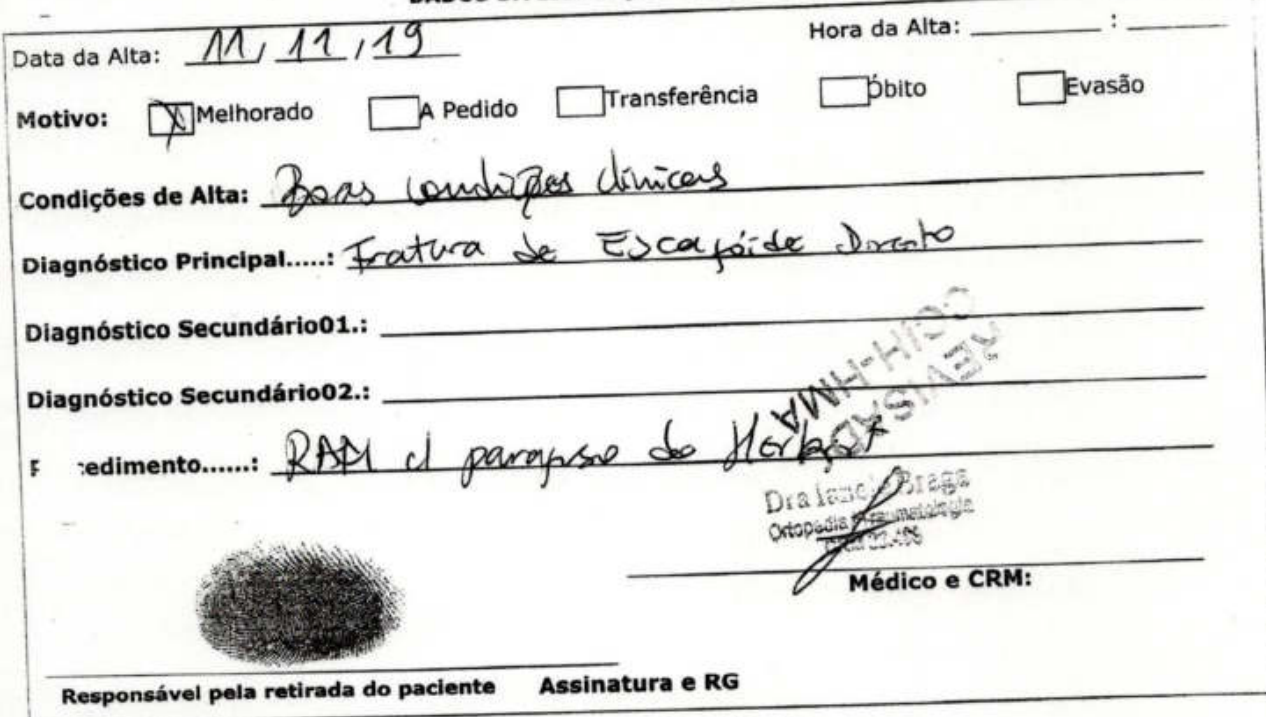 Data da Alta: 11/11/19 Hora da Alta: ______ : ______
Motivo: Melhorado A Pedido Transferência Óbito Evasão
Condições de Alta: Boas condições clínicas
Diagnóstico Principal.....: Fratura de Escafóide Direito
Diagnóstico Secundário01.:
Diagnóstico Secundário02.:
edimento......: c/ parafuso de Herbert
REVISADO
CCIH-HMA
Dra Braga
Ortopedia e Traumatologia
Médico e CRM:
Responsável pela retirada do paciente Assinatura e RG